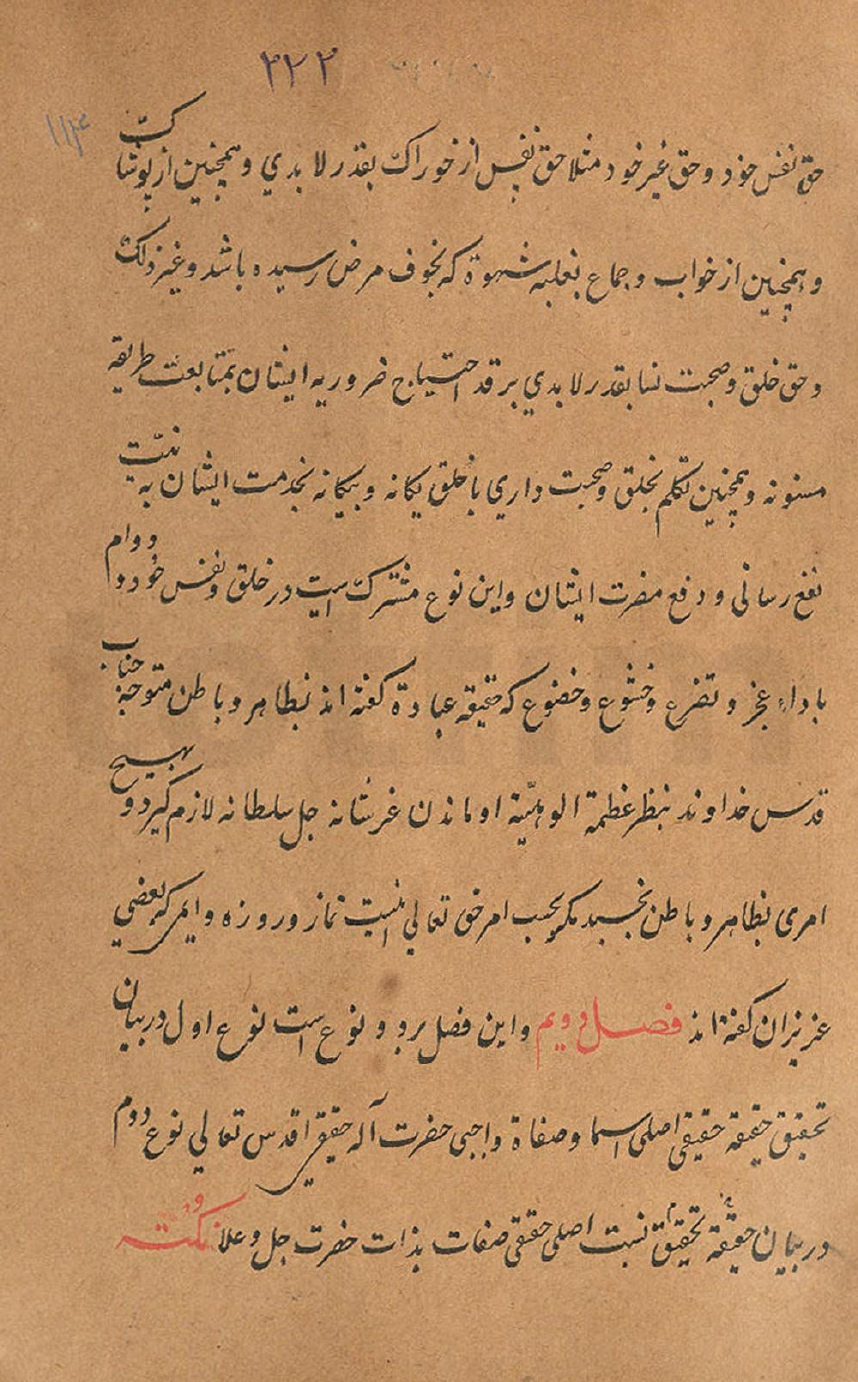 ۳۲۲
۱۱۴
حق نفس خود و حق غیر خود مثلا حق نفس از خوراک بقدر لا بدي و همچنین از پوشاک
و همچنین از خواب و جماع بغلبه شهوة که بخوف مرض رسیده باشد و غیر ذلک
و حق خلق و صحبت نسا بقدر لا بدي بر قد احتیاج ضروریه ایشان بمتابعت طریقه
مسنونه و همچنین تکلم بخلق و صحبت داري با خلق یکانه و بیکانه بخدمت ایشان به نیت
نفع رسانی و دفع مضرت ایشان و این نوع مشترک است در خلق و نفس خود و دوام
باداء عجز و تضرع و خشوع و خضوع که حقیقه عبادة کفته اند بظاهر و باطن متوجه جناب
قدس خداوند بنظر عظمة الوهیّة او ماندن عز شانه جل سلطانه لازم کیرد و بهیچ
امری بظاهر و باطن نجسبد مکر بحسب امر حق تعالي اینست نماز و روزه دایمی که بعضي
عزیزان کفته اند فصل دویم و این فصل بر دو نوع است نوع اول در بیان
تحقیق حقیقة حقیقی اصلی اسما و صفاة واجبی حضرت آله حقیقی اقدس تعالي نوع دوم
در بیان حقیقة تحقیق نسبت اصلی حقیقی صفات بذات حضرت جل و علا نکته